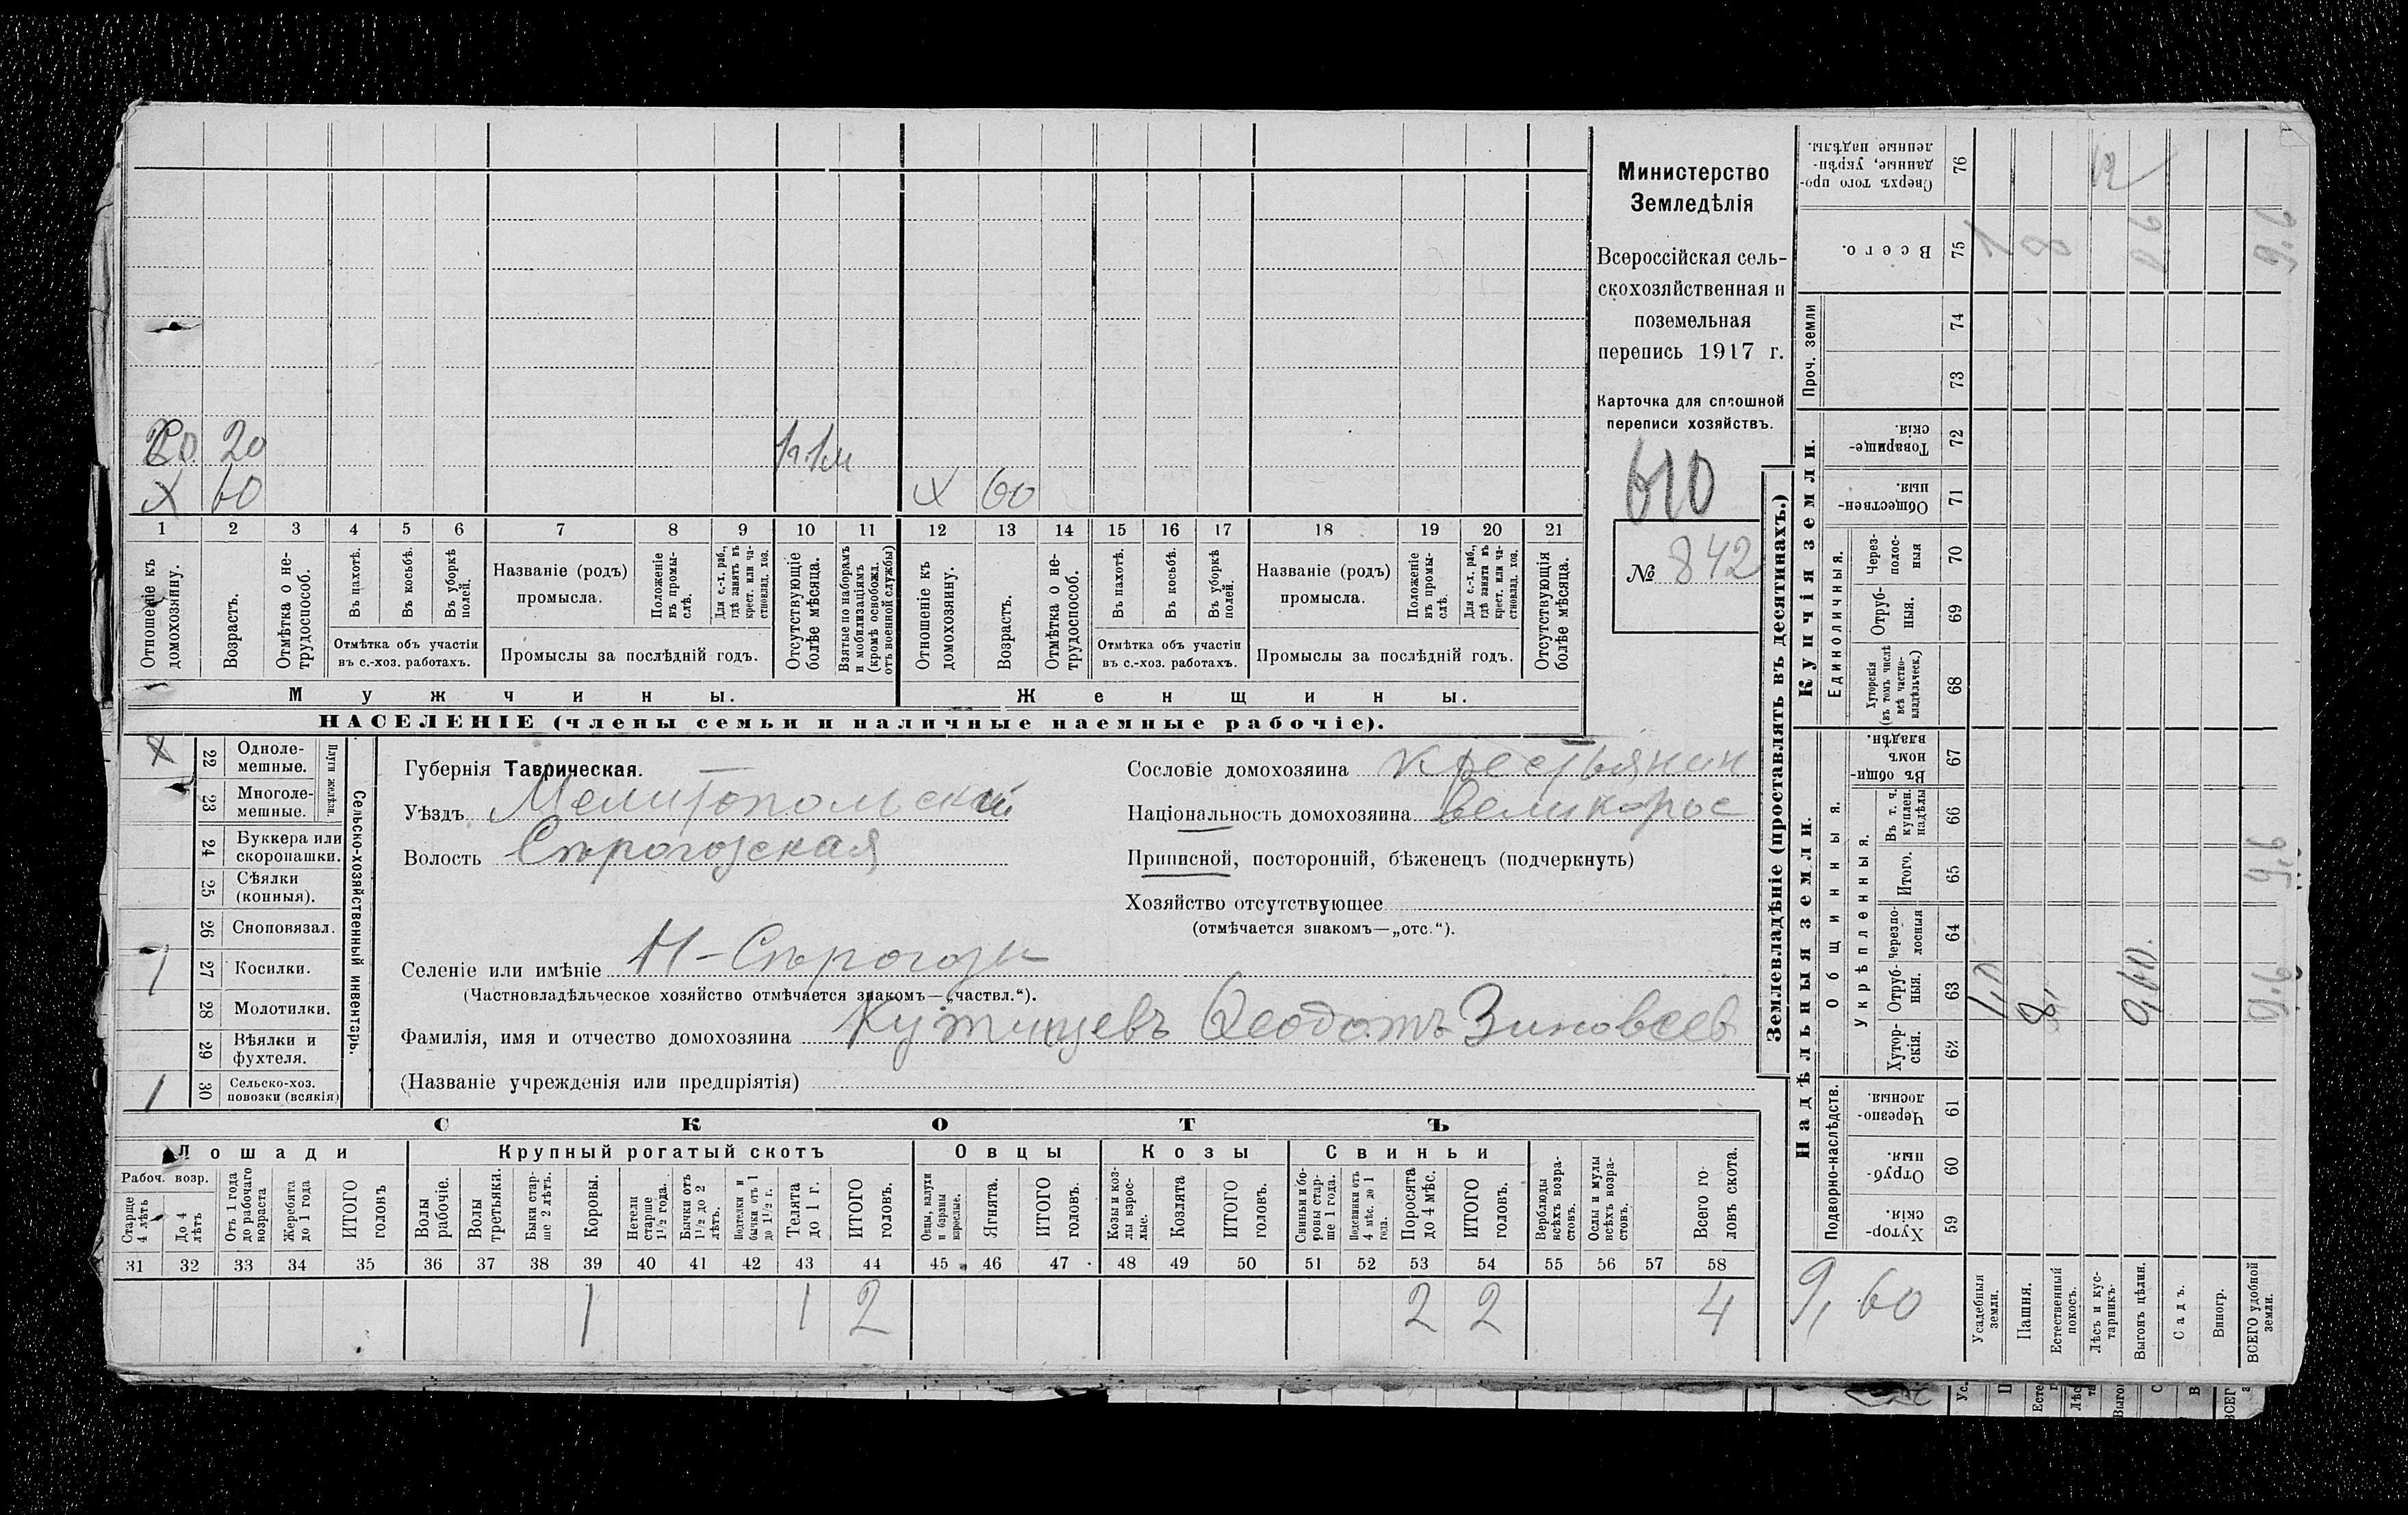 Министерство
Земледѣлія
Всероссійская сель-
скохозяйственная и
поземельная
перепись 1917 г.
Карточка для сплошной
переписи хозяйствъ.
610
№ 842
20 20
х 60
х 60
1 2 3 4 5 6 7 8 9 10 11 12 13 14 15 16 17 18 19 20 21
Отношеніе къ домохозяину.
Возрастъ.
Отмѣтка о не-
трудоспособ.
Въ пахотѣ.
Въ косьбѣ.
Въ уборкѣ полей.
Отмѣтка объ участіи
въ с.-хоз. работахъ.
Названіе (родъ)
промысла.
Положеніе въ промы-
слѣ.
Для с.-х. раб., гдѣ занятъ въ крест. или ча-
стновлад. хоз.
Промыслы за послѣдній годъ.
Отсутствующіе болѣе мѣсяца.
Взятые по наборамъ и мобилизаціямъ (кромѣ освобожд. отъ военной службы)
Отношеніе къ домохозяину.
Возрастъ.
Отмѣтка о не-
трудоспособ.
Въ пахотѣ.
Въ косьбѣ.
Въ уборкѣ полей.
Отмѣтка объ участіи
въ с.-хоз. работахъ.
Названіе (родъ)
промысла.
Положеніе въ промы-
слѣ.
Для с.-х. раб., гдѣ занята въ крест. или ча-
стновлад. хоз.
Промыслы за послѣдній годъ.
Отсутствующія болѣе мѣсяца.
Мужчины.
Женщины.
НАСЕЛЕНІЕ (члены семьи и наличные наемные рабочіе).
Сельско-хозяйственный инвентарь.
Плуги желѣзн.
х 22 Одноле-
мешные.
23 Многоле-
мешные.
24 Буккера или
скоропашки.
25 Сѣялки
(конныя).
26 Сноповязал.
1 27 Косилки.
28 Молотилки.
29 Вѣялки и
фухтеля.
1 30 Сельско-хоз.
повозки (всякія)
Губернія Таврическая.
Уѣздъ Мелитопольский
Волость Сѣрогозская
Сословіе домохозяина крестьянин
Національность домохозяина Великорос
Приписной, посторонній, бѣженецъ (подчеркнуть)
Хозяйство отсутствующее
(отмѣчается знакомъ—„отс.“).
Селеніе или имѣніе Н-Сѣрогозы
(Частновладѣльческое хозяйство отмѣчается знакомъ—„частвл.“).
Фамилія, имя и отчество домохозяина Ѳеодотъ Зиновьев
(Названіе учрежденія или предпріятія)
СКОТЪ
Лошади
Крупный рогатый скотъ
Овцы
Козы
Свиньи
Рабоч. возр.
Старше 4 лѣтъ
До 4 лѣтъ
Отъ 1 года до рабочаго возраста
Жеребята до 1 года
ИТОГО головъ
Волы рабочіе.
Волы третьяки.
Быки стар-
ше 2 лѣтъ.
Коровы.
Нетели старше 1½ года.
Бычки отъ 1½ до 2 лѣтъ.
Подтелки и бычки отъ 1 до 1½ г.
Телята до 1 г.
ИТОГО головъ.
Овцы, валухи и бараны взрослые.
Ягнята.
ИТОГО головъ.
Козы и коз-
лы взрос-
лые.
Козлята
ИТОГО головъ.
Свиньи и бо-
ровы стар-
ше 1 года.
Подсвинки отъ 4 мѣс. до 1 года.
Поросята до 4 мѣс.
ИТОГО головъ.
Верблюды всѣхъ возра-
стовъ.
Ослы и мулы всѣхъ возра-
стовъ.
Всего го-
ловъ скота.
31 32 33 34 35 36 37 38 39 40 41 42 43 44 45 46 47 48 49 50 51 52 53 54 55 56 57 58
1 1 2 2 2 4
Землевладѣніе (проставлять въ десятинахъ.)
Купчія земли.
Надѣльныя земли.
Сверхъ того про-
данные, укрѣп-
ленные надѣлы.
76
Всего.
75
Проч. земли
74
73
Товарище-
скія.
72
Обществен-
ныя.
71
Единоличныя.
Через-
полос-
ныя
70
Отруб-
ныя.
69
Хуторскія (въ томъ числѣ всѣ частно-
владѣльческ.)
68
Общинныя.
Въ общин-
номъ
владѣн.
67
Укрѣпленныя.
Въ т. ч. куплен. надѣлы
66
Итого.
65
Черезпо-
лосныя
64
Отруб-
ныя.
63
Хутор-
скія.
62
Подворно-наслѣдств.
Черезпо-
лосныя.
61
Отруб-
ныя.
60
Хутор-
скія.
59
9,60
Усадебныя земли.
Пашня.
Естественный покосъ.
Лѣсъ и кус-
тарникъ.
Выгонъ цѣлин.
Садъ.
Виногр.
ВСЕГО удобной земли.
1,0
8,
0,60.
9.6
9.6
1
8
0.6
9.6